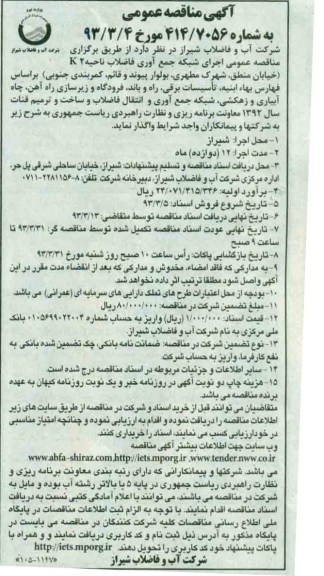 آگهی مناقصه عمومی
به شماره ۴۱۴/۷۰۵۶ مورخ ۹۳/۳/۴
شرکت آب و فاضلاب شیراز
شرکت آب و فاضلاب شیراز در نظر دارد از طریق برگزاری
مناقصه عمومی اجرای شبکه جمع آوری فاضلاب ناحیه K ۲
(خیابان منطق، شهرک مطهری، بولوار پیوند و قائم، کمربندی جنوبی) براساس
فهارس بهاء ابنیه، تأسیسات برقی، راه و باند، فرودگاه و زیرسازی راه آهن، چاه
آبیاری و زهکشی، شبکه جمع آوری و انتقال فاضلاب و ساخت و ترمیم قنات
سال ۱۳۹۲ معاونت برنامه ریزی و نظارت راهبردی ریاست جمهوری به شرح زیر
به شرکتها و پیمانکاران واجد شرایط واگذار نماید.
۱- محل اجرا: شیراز
۲- مدت اجرا: ۱۲ (دوازده) ماه
۳- محل دریافت اسناد مناقصه و تسلیم پیشنهادات: شیراز، خیابان ساحلی شرقی پل حر،
اداره مرکزی شرکت آب و فاضلاب شیراز، دبیرخانه شرکت تلفن: ۸-۲۲۸۱۱۵۶-۰۷۱۱
۴- برآورد اولیه: ۲۳/۰۷۱/۴۱۵/۳۴۶ ریال
۵- تاریخ شروع فروش اسناد: ۹۳/۳/۵
۶- تاریخ نهایی دریافت اسناد مناقصه توسط متقاضی: ۹۳/۳/۱۳
۷- تاریخ نهایی عودت اسناد مناقصه تکمیل شده توسط مناقصه گر: ۹۳/۳/۳۱ تا
ساعت ۹ صبح
۸- تاریخ بازگشایی پاکات: رأس ساعت ۱۰ صبح روز شنبه مورخ ۹۳/۳/۳۱
۹- به مدارکی که فاقد امضاء، مخدوش و مدارکی که بعد از انقضاء مدت مقرر در این
آگهی واصل شود مطلقا ترتیب اثر داده نخواهد شد.
۱۰- بودجه از محل اعتبارات طرح های تملک دارایی های سرمایه ای (عمرانی) می باشد.
۱۱- مبلغ تضمین شرکت در مناقصه: ۸۰۰/۰۰۰/۰۰۰ ریال
۱۲- قیمت اسناد: ۱/۰۰۰/۰۰۰ (ریال) واریز به حساب شماره ۰۱۰۵۶۹۹۰۲۲۰۰۴ بانک
ملی مرکزی به نام شرکت آب و فاضلاب شیراز.
۱۳- نوع تضمین شرکت در مناقصه: ضمانت نامه بانکی، چک تضمین شده بانکی به
نفع کارفرما، واریز به حساب شرکت.
۱۴- سایر اطلاعات و جزئیات مربوطه در اسناد مناقصه درج شده است.
۱۵- هزینه چاپ دو نوبت آگهی در روزنامه خبر و یک نوبت روزنامه کیهان به عهده
برنده مناقصه می باشد.
متقاضیان می توانند قبل از خرید اسناد و شرکت در مناقصه از طریق سایت های زیر
اطلاعات مناقصه را دریافت نموده و اقدام به ارزیابی نموده و چنانچه امتیاز مناسبی
در خود ارزیابی کسب می نمایند، اسناد را خریداری کنند.
وب سایت جهت اطلاعات بیشتر آگهی مناقصه
www.abfa-shiraz.com, http://iets.mporg.ir ,www.tender.nww.co.ir
می باشد. شرکتها و پیمانکارانی که دارای رتبه بندی معاونت برنامه ریزی و
نظارت راهبردی ریاست جمهوری در پایه ۵ یا بالاتر رشته آب بوده و مایل به
شرکت در مناقصه می باشند، می توانند با اعلام آمادگی کتبی نسبت به دریافت
اسناد مناقصه اقدام نمایند. با توجه به الزام ثبت اطلاعات مناقصات در پایگاه
ملی اطلاع رسانی مناقصات کلیه شرکت کنندگان در مناقصه می بایست در
پایگاه مذکور به آدرس ذیل ثبت نام و کد کاربری دریافت نمایند و و همراه با
پاکات پیشنهاد خود کد کاربری را تحویل دهند. http://iets.mporg.ir
شرکت آب و فاضلاب شیراز
«۱۰۵-۱۱۴۷»